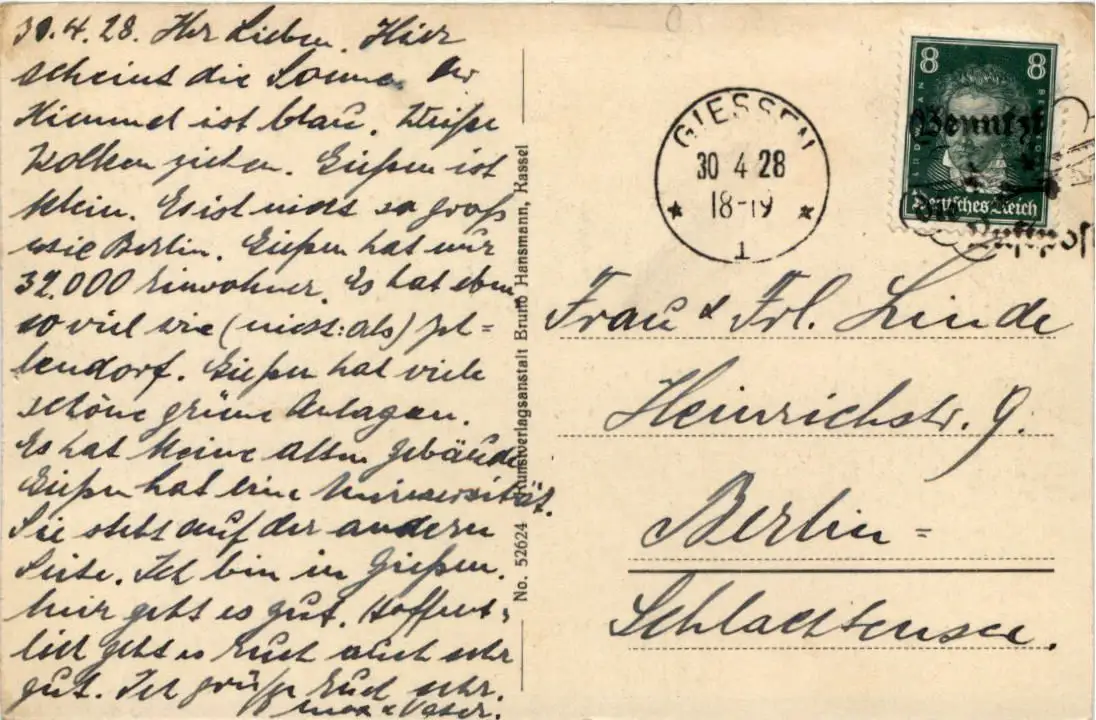 30.4.28. Ihr Lieben. Hier
scheint die Sonne. Der
Himmel ist blau. Weiße
Wolken ziehen. Gießen ist
klein. Es ist nicht so groß
wie Berlin. Gießen hat nur
32.000 Einwohner. Es hat eben
so viel wie (nicht: als) Zeh=
lendorf. Gießen hat viele
schöne grüne Anlagen.
Es hat keine alten Gebäude
Gießen hat eine Universität.
Sie steht auf der andern
Seite. Ich bin in Gießen.
Mir geht es gut. Hoffent=
lich geht es Euch auch sehr
gut. Ich grüße Euch sehr.
Vater.
No. 52624 Kunstverlagsanstalt Bruno Hansmann, Kassel
GIESSEN
30 4 28
18-19
1
8 8
Benutzt
Deutsches Reich
Die Luftpost
Frau & Frl. Linde
Heinrichstr. 9.
Berlin=
Schlachtensee.